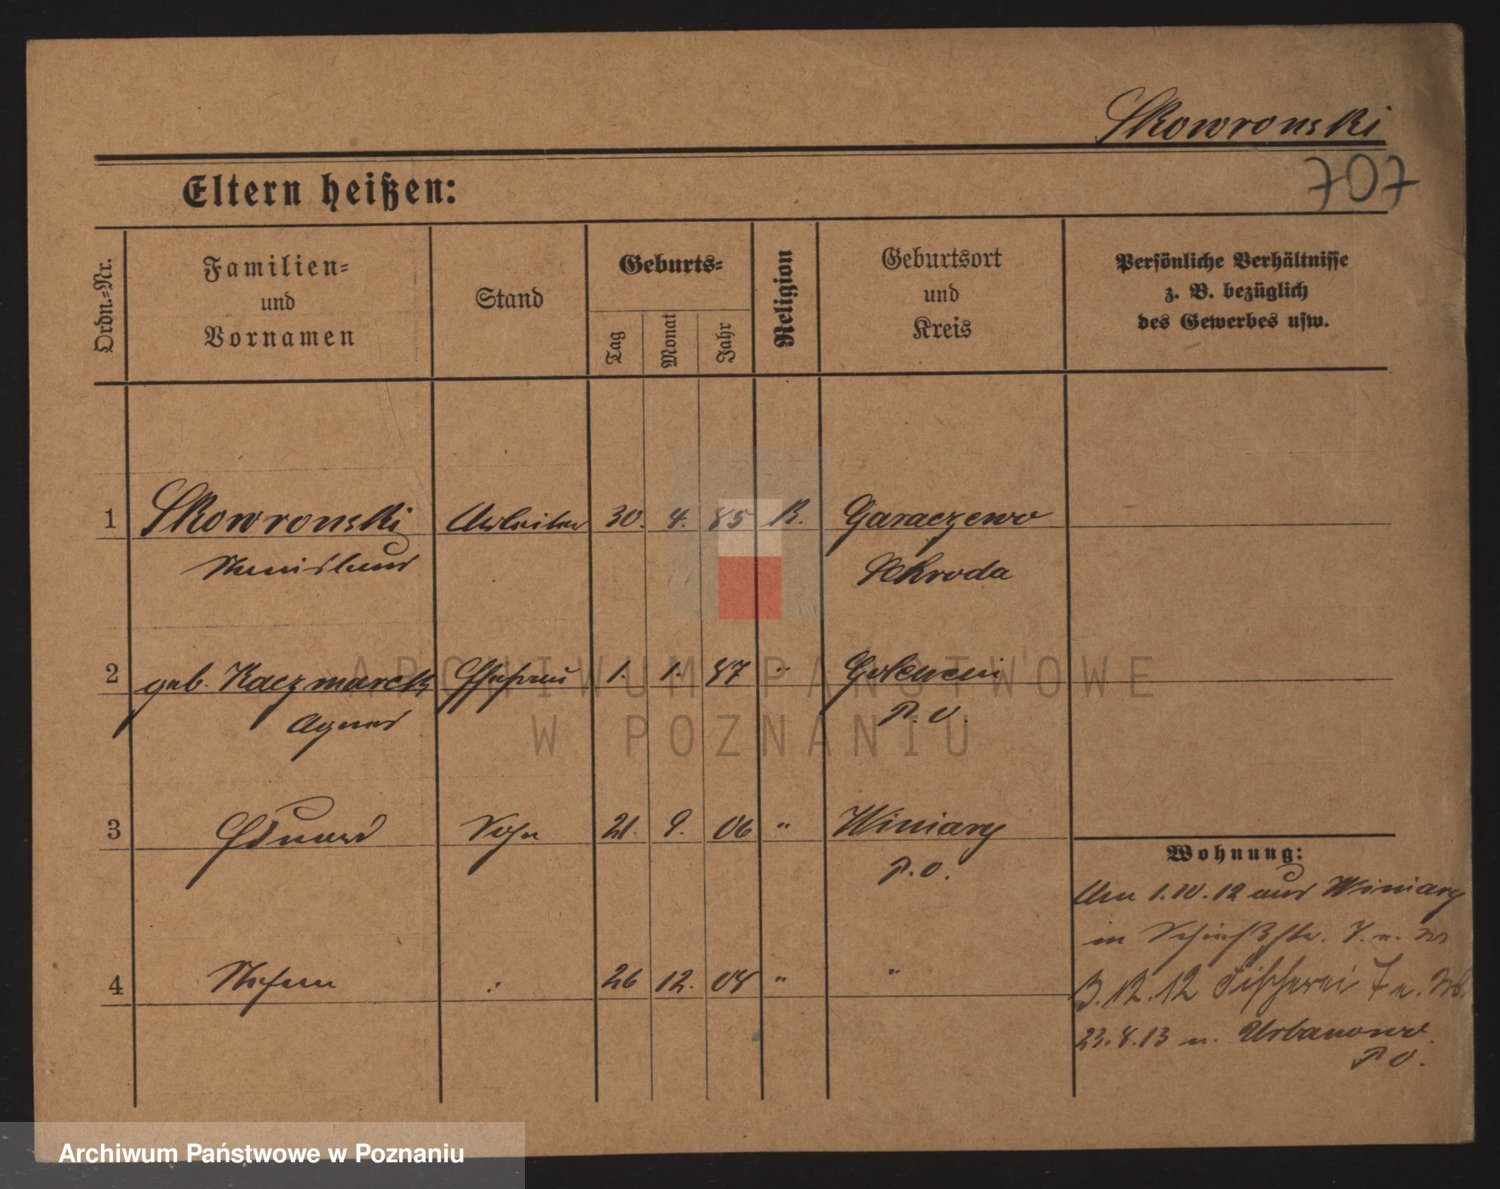 Skowronski
707
Eltern heißen:
Ordn.=Nr.
Familien=
und
Vornamen
Stand
Geburts=
Tag
Monat
Jahr
Religion
Geburtsort
und
Kreis
Persönliche Verhältnisse
z. B. bezüglich
des Gewerbes usw.
1 Skowronski Arbeiter 30. 4. 85 K. Garaczewo
Stanislaus Schroda
2 geb. Kaczmarek Ehefrau 1. 1. 87 " Golencin
Agnes P. O.
3 Eduard Sohn 21. 9. 06 " Winiary
P. O.
4 Stefan " 26 12. 08 " "
Wohnung:
Am 1.10.12 aus Winiary
in
3.12.12 Fischerei 7
23.8.13 n. Urbanowo
P O.
ARCHIWUM PAŃSTWOWE
W POZNANIU
Archiwum Państwowe w Poznaniu